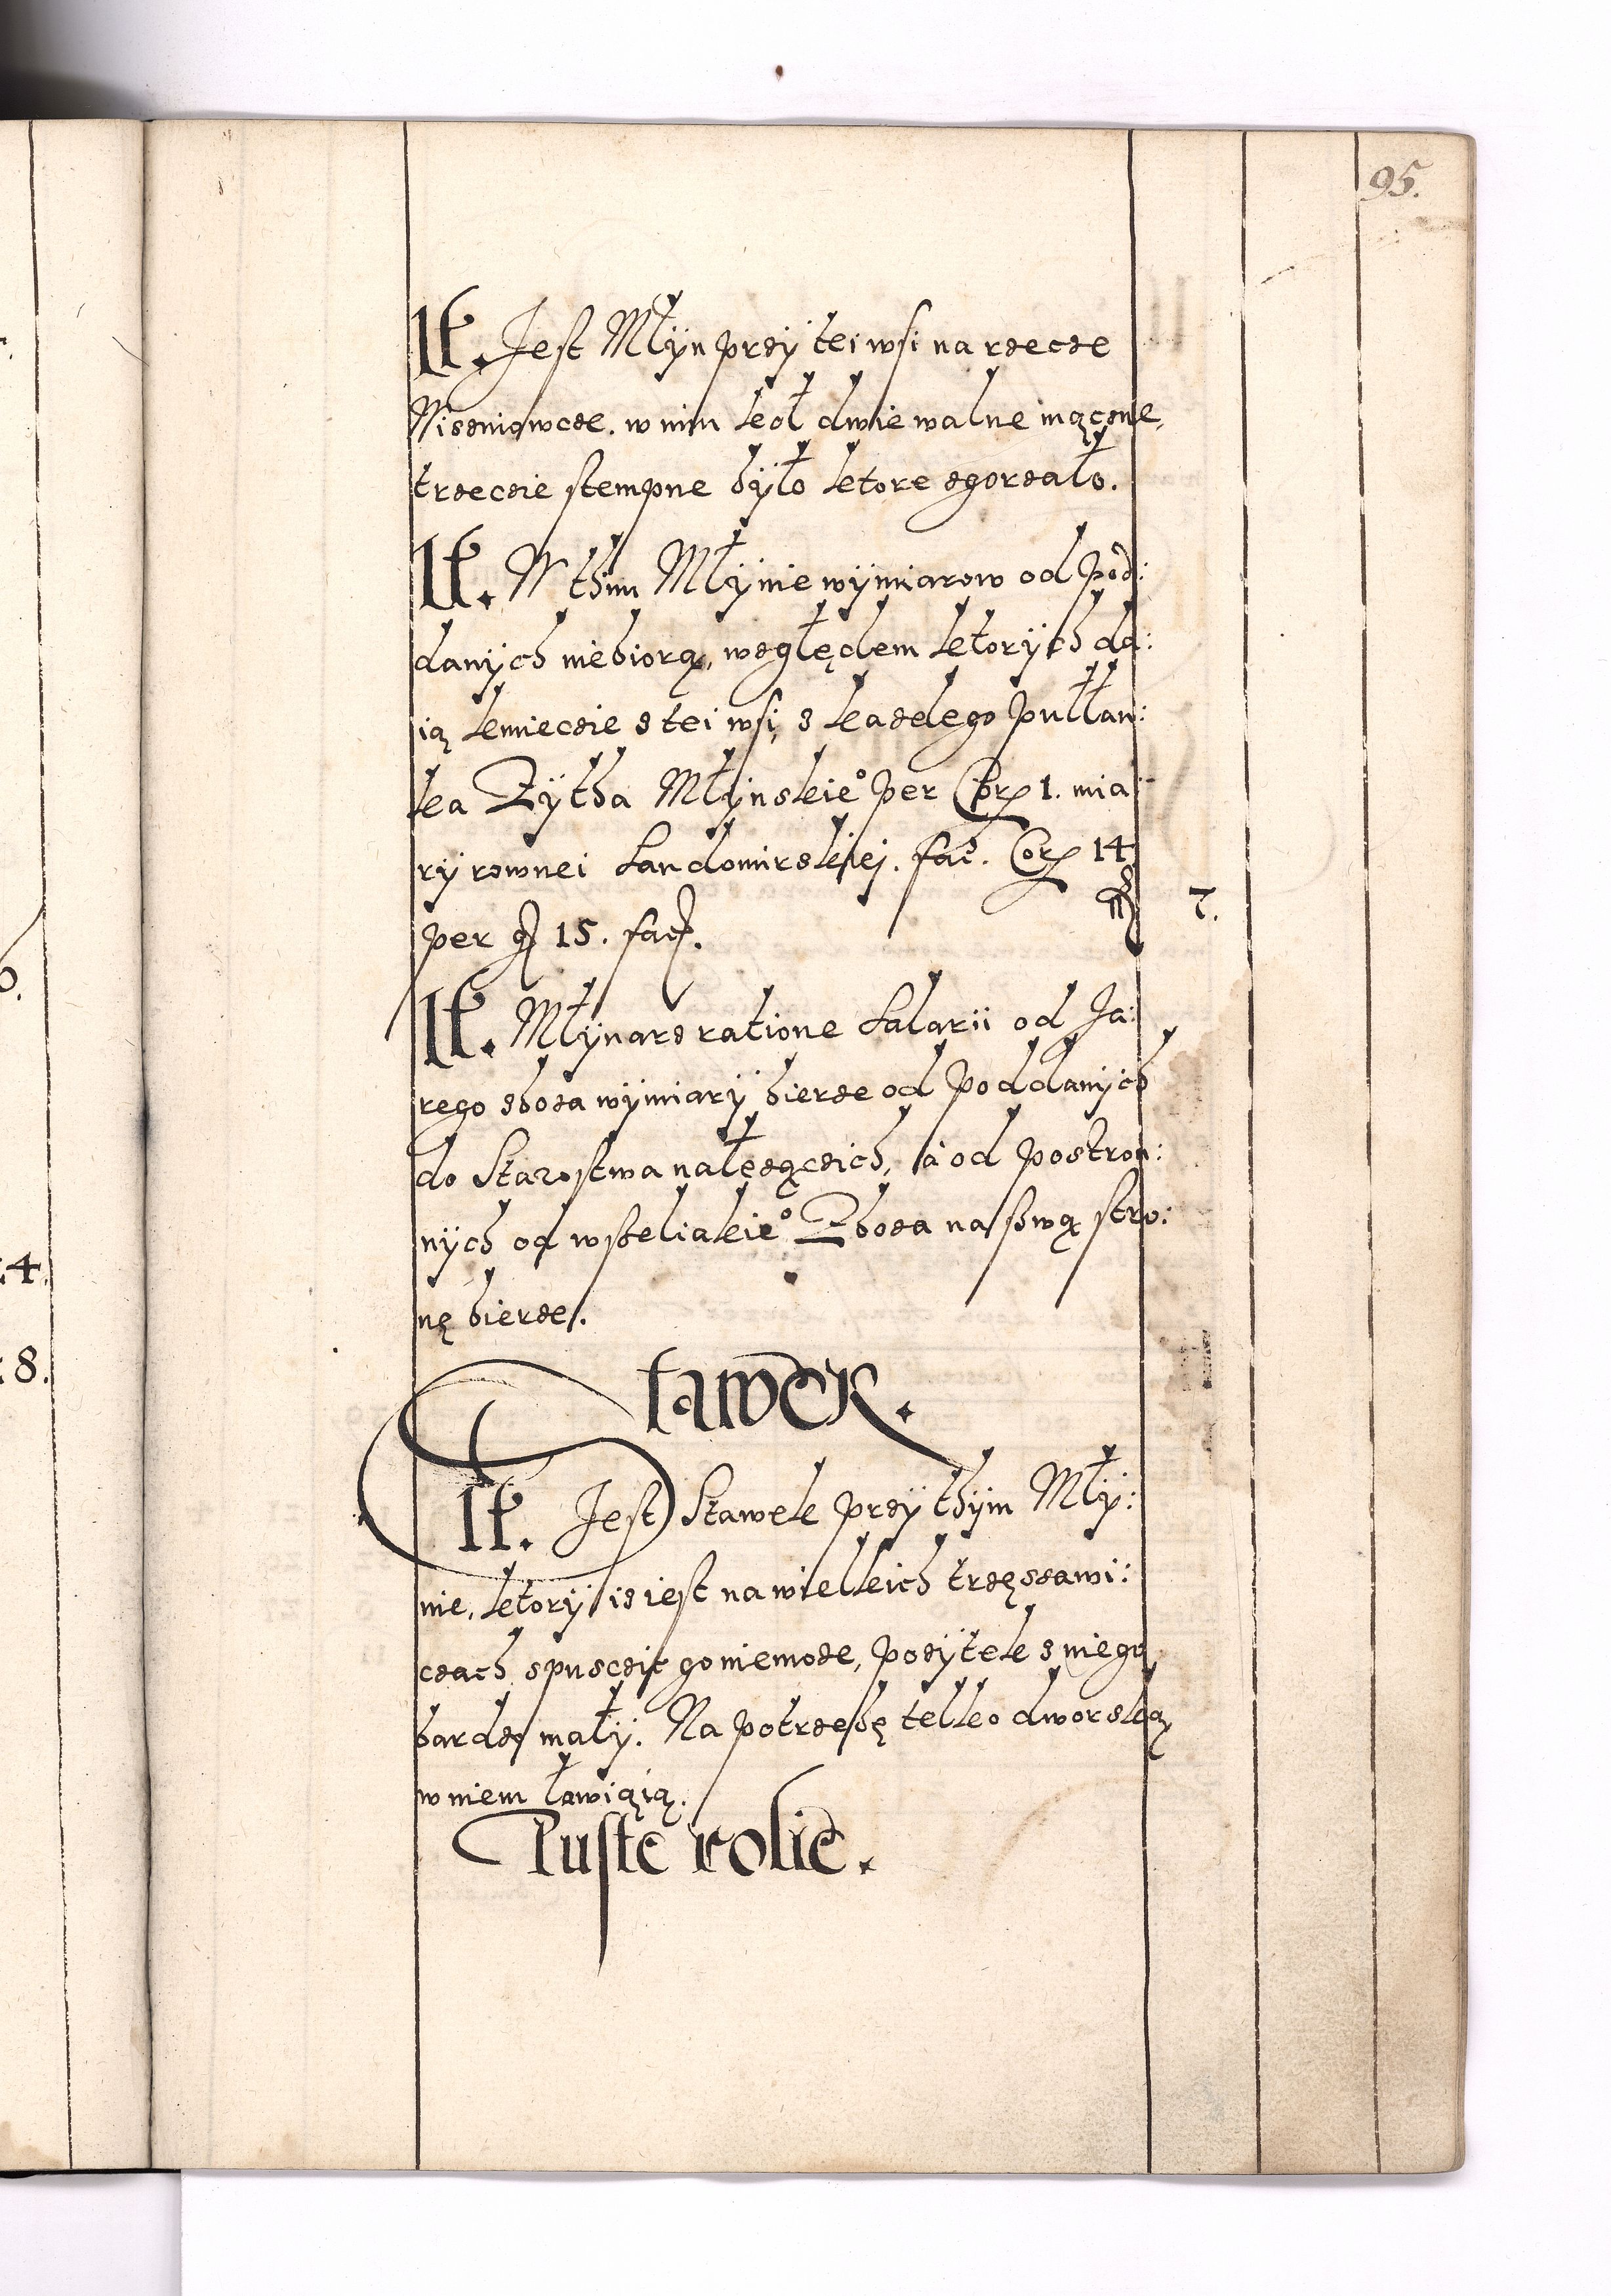 95.
It. Jest Młÿn przÿ tei wsi na rzecze
Niszniowcze. w nim koł dwie walne mączne,
trzeczie stempne bÿło ktore zgorzało.
It. W thim Młÿnie wÿmiarow od Pod:
danÿch niebiorą, względem ktorÿch da:
ią kmieczie z tei wsi, z kazdego pułłan:
ka Zÿtha Młÿnskie° per Cor 1. mia
rÿ rownei Sandomirskiej. fac. Cor 14
per g 15. fac. 7.
It. Młÿnarz ratione Salarii od Ja:
rego zboza wÿmiarÿ bierze od Poddanÿch
do Starostwa nałęzączich, a od postron:
nÿch od wszeliakie° Zboza na szwą stro:
nę bierze.
Stawek.
It. Jest Stawek przÿ thÿm Młÿ:
nie, ktorÿ iz iest na wielkich trzęszawi:
czach spusczic go niemoze, pozÿtek z niego
bardzo małÿ. Na potrzebę telko dworską
w niem łowiąią.
Puste rolie.
4.
8.